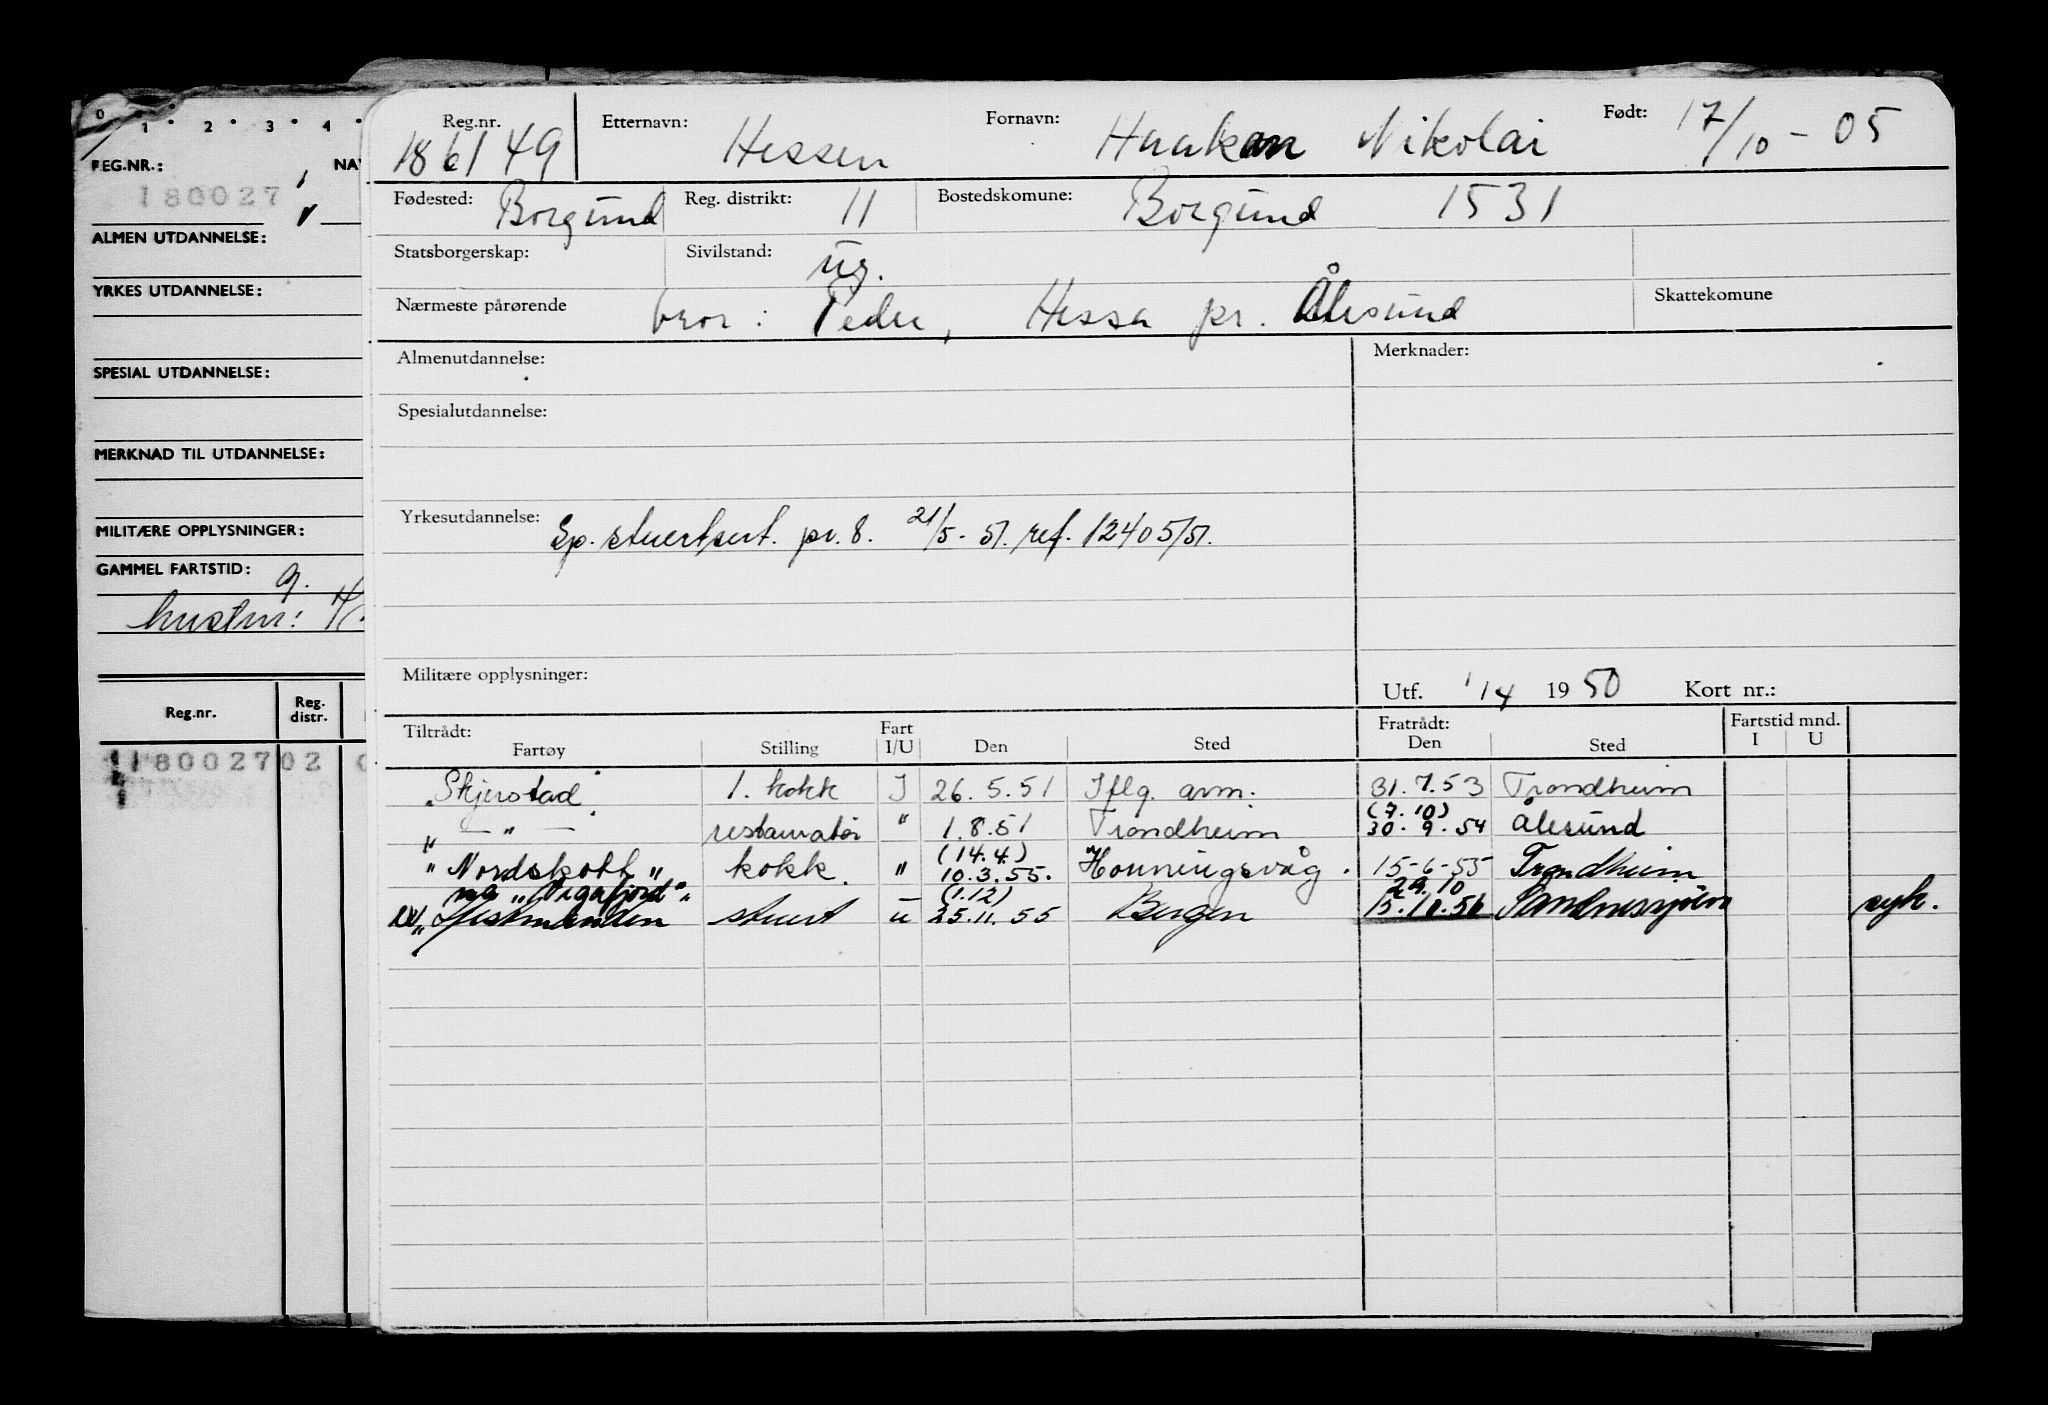 0 1 2 3 4
REG.NR.: NA
180027
ALMEN UTDANNELSE:
YRKES UTDANNELSE:
SPESIAL UTDANNELSE:
MERKNAD TIL UTDANNELSE:
MILITÆRE OPPLYSNINGER:
GAMMEL FARTSTID: g.
hustru: H
Reg.nr. Reg. distr.
18002702
Reg.nr. 186149 Etternavn: Hessen Fornavn: Haakon Nikolai Født: 17/10-05
Fødested: Borgund Reg. distrikt: 11 Bostedskomune: Borgund 1531
Statsborgerskap: Sivilstand: ug.
Nærmeste pårørende bror: Peder, Hessa pr. Ålesund Skattekomune
Almenutdannelse: Merknader:
Spesialutdannelse:
Yrkesutdannelse: Sp. stuertsert. pr. 8. 21/5-51. ref. 12405/51.
Militære opplysninger:
Utf. 1/4 1950 Kort nr.:
Tiltrådt: Fart Fratrådt: Fartstid mnd.
Fartøy Stilling I/U Den Sted Den Sted I U
"Skjerstad" 1. kokk I 26.5.51 Iflg. avm. 31.7.53 Trondheim
" — " — restauratør " 1.8.51 Trondheim (7.10) 30.9.54 Ålesund
"Nordskott" kokk. " (14.4) 10.3.55. Honningsvåg. 15-6-55 Trondheim
nå "Vegafjord"
"Hestmanden stuert u (1.12) 25.11.55 Bergen 29.10 15.10.56 Sandnessjøen syk.